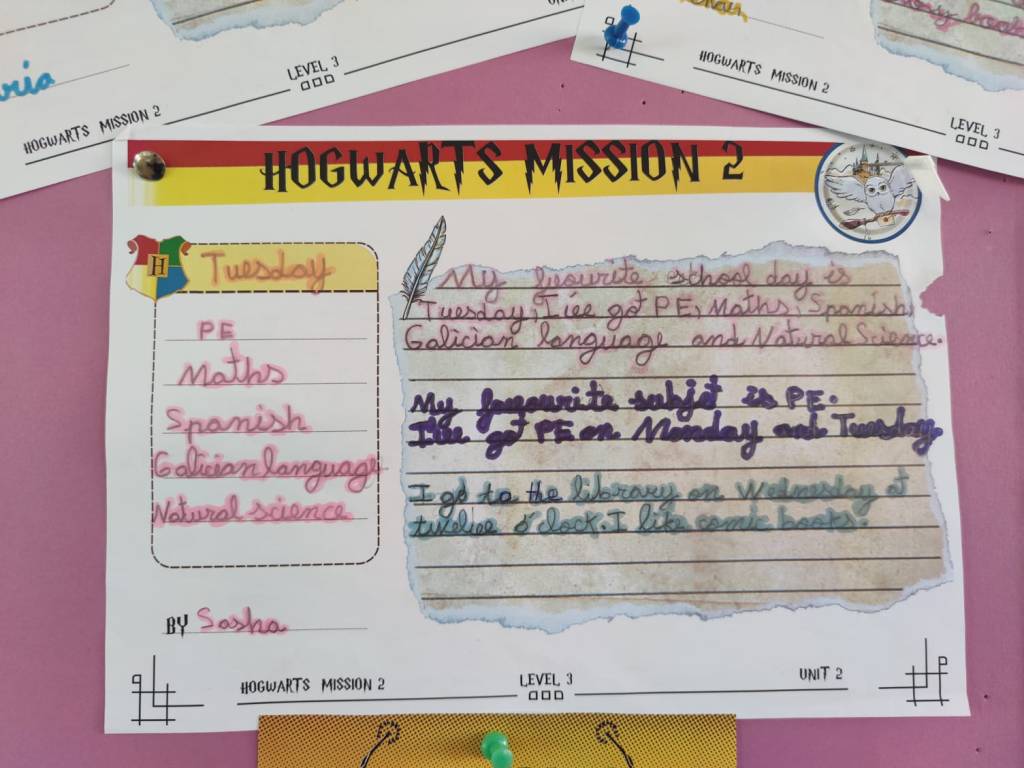 oria
HOGWARTS MISSION 2
LEVEL 3
HOGWARTS MISSION 2
LEVEL 3
HOGWARTS MISSION 2
H
Tuesday
PE
Maths
Spanish
Galician language
Natural science
BY Sasha
My favourite school day is
Tuesday, I've got PE, Maths, Spanish
Galician language and Natural Science.
My favourite subjet is PE.
I've got PE on Monday and Tuesday
I go to the library on Wednesday at
twelve o'clock. I like comic books.
HOGWARTS MISSION 2
LEVEL 3
UNIT 2